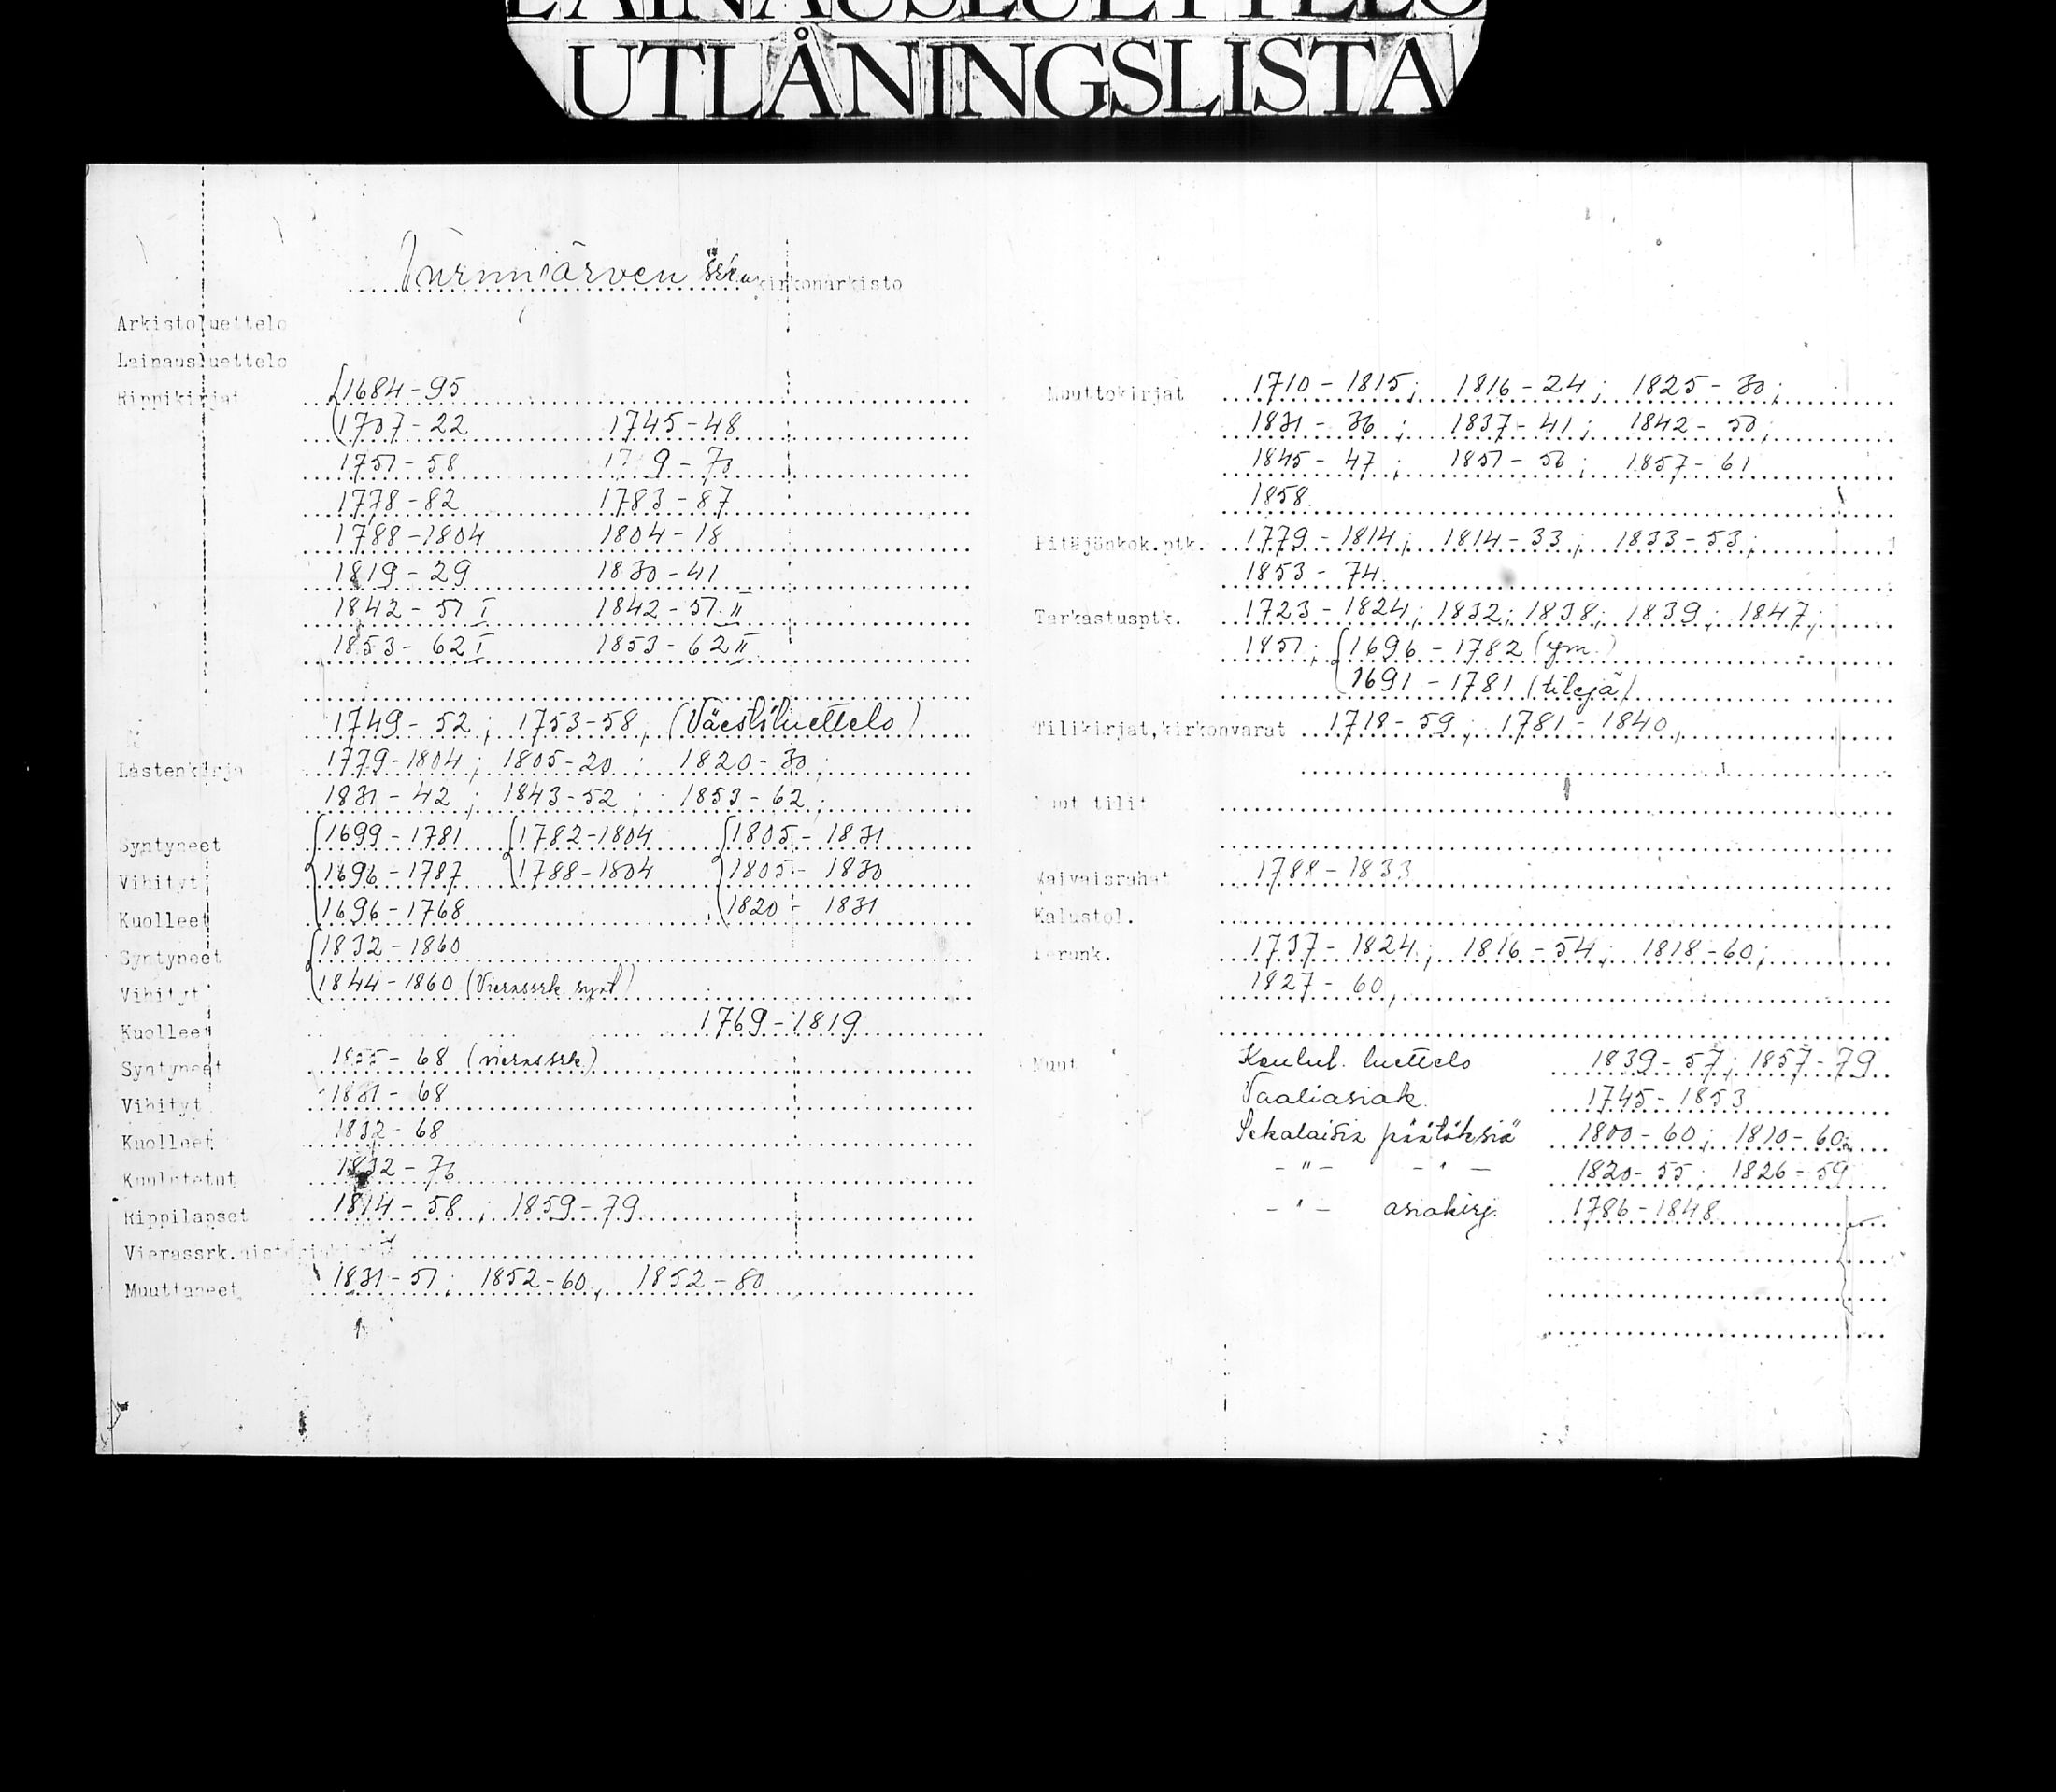 LAINAUSLUETTELO
UTLÅNINGSLISTA
Nurmijärven srk:n kirkonarkisto
Arkistoluettelo
Lainausluettelo
Rippikirjat 1684-95
1707-22 1745-48
1751-58
1778-82 1783-87
1788-1804 1804-18
1819-29 1830-41
1842-51 I 1842-51 II
1853-62 I 1853-62 II
1749-52; 1753-58, (Väestöluettelo)
Lastenkirja 1779-1804; 1805-20; 1820-30;
1831-42; 1843-52; 1853-62;
Syntyneet 1699-1781 1782-1804 1805-1831
Vihityt 1696-1787 1788-1804 1805-1830
Kuolleet 1696-1768 1820-1831
Syntyneet 1832-1860
Vihityt 1844-1860 (Vierassrk. synt)
Kuolleet 1769-1819
Syntyneet 1855-68 (vierassrk)
Vihityt 1831-68
Kuolleet 1832-68
Kuulutetut 1832-76
Rippilapset 1814-58; 1859-79
Vierassrk.
Muuttaneet 1831-51; 1852-60, 1852-80
Muuttokirjat 1710-1815; 1816-24; 1825-30;
1831-36; 1837-41; 1842-50;
1845-47; 1851-56; 1857-61
1858
Pitäjänkok.ptk. 1779-1814; 1814-33; 1833-53;
1853-74
Tarkastusptk. 1723-1824; 1832; 1838; 1839; 1847;
1851; 1696-1782 (ym.)
1691-1781 (tilejä)
Tilikirjat,kirkonvarat 1718-59; 1781-1840,
Muut tilit
Vaivaisrahat 1788-1833
Kalustol.
Perunk. 1737-1824; 1816-54; 1818-60;
1827-60,
Muut Koulul. luettelo 1839-57; 1857-79
Vaaliasiak. 1745-1853
Sekalaisia päätöksiä 1800-60; 1810-60;
-"- -"- 1820-55; 1826-59
-"- asiakirj. 1786-1848